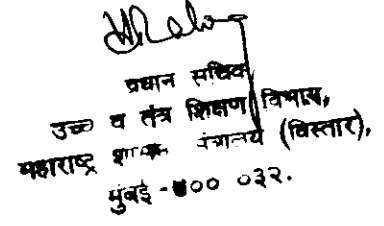 प्रधान सचिव
उच्च व तंत्र शिक्षण विभाग,
महाराष्ट्र मंत्रालय (विस्तार),
मुंबई -४०० ०३२.